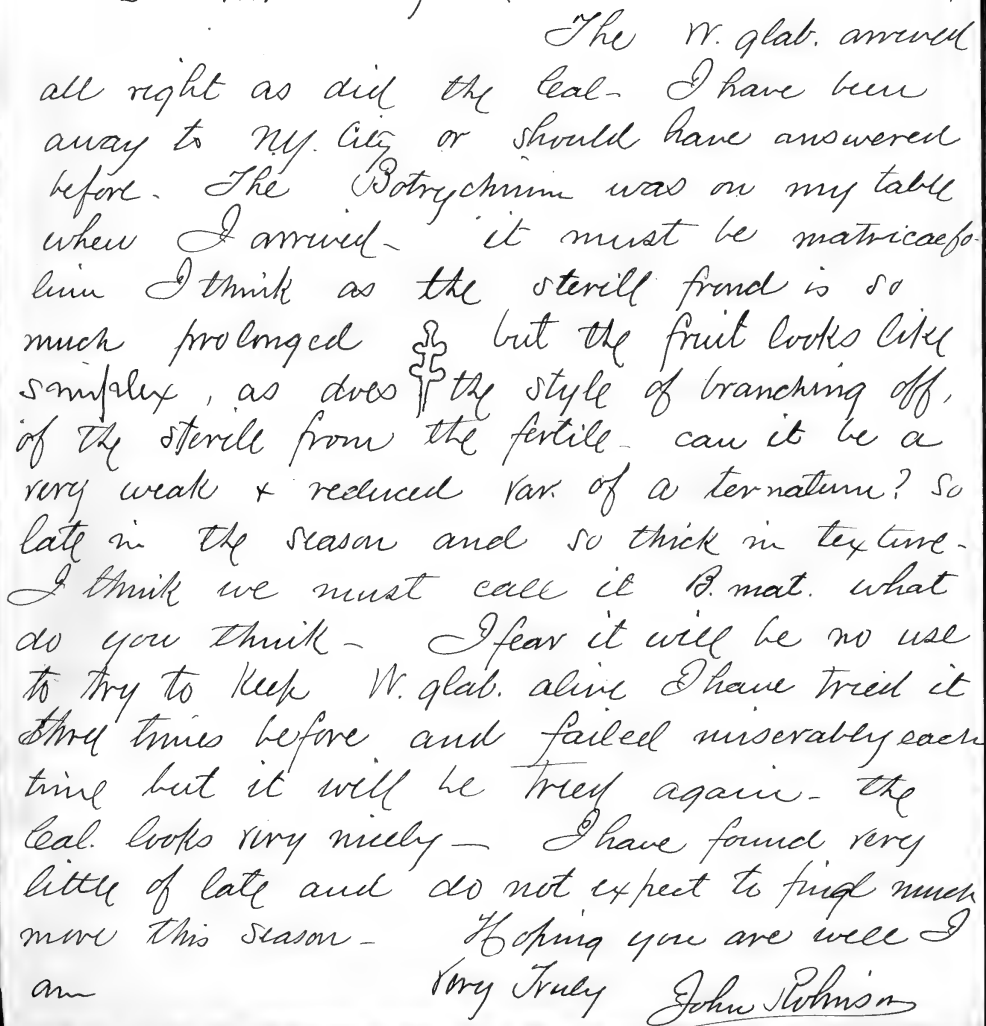 The W. glab. arrived
all right as did the Cal- I have been
away to N.Y. City or should have answered
before. The Botrychium was on my table
when I arrived- it must be matricaefo-
lium I think as the sterill frond is so
much prolonged but the fruit looks like
simplex, as does the style of branching off,
of the sterile from the fertile- can it be a
very weak & reduced var. of a ternatum? so
late in the season and so thick in texture-
I think we must call it B. mat. what
do you think- I fear it will be no use
to try to keep W. glab. alive I have tried it
three times before and failed miserably each
time but it will be tried again- the
Cal. looks very nicely- I have found very
little of late and do not expect to find much
more this season- Hoping you are well I
am Very Truly John Robinson